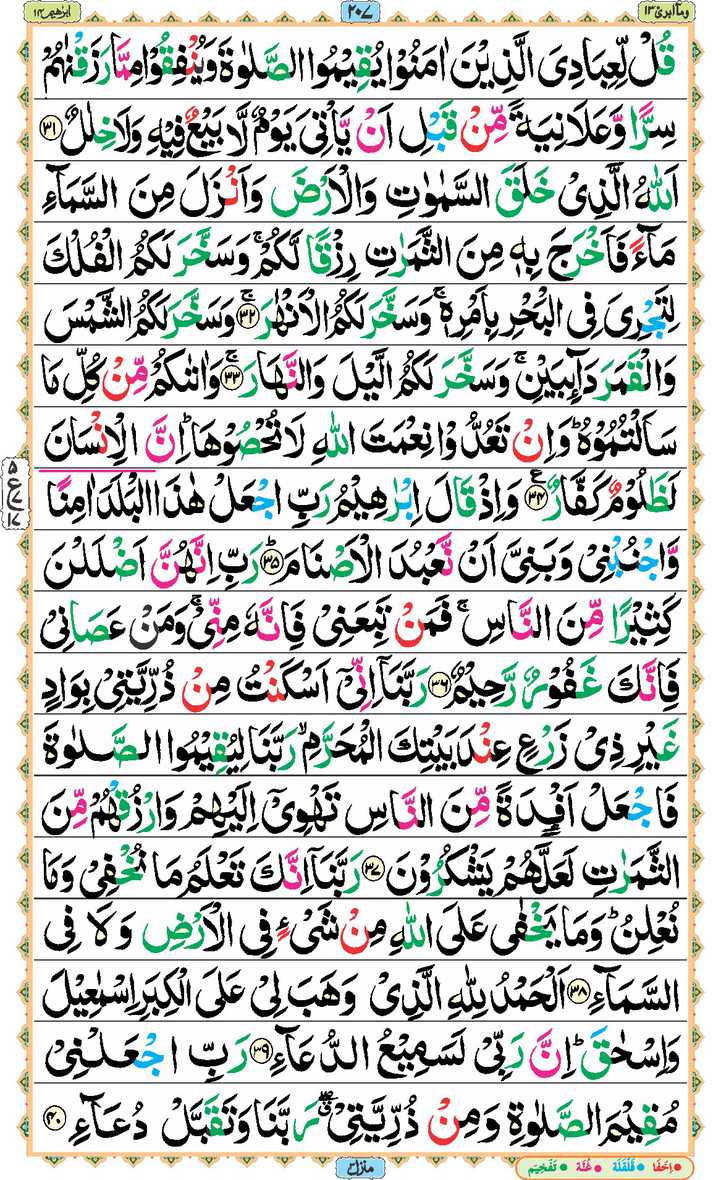 وماابرئ ۱۳
۲۰۷
ابرٰهیم ۱۴
قُلْ لِّعِبَادِیَ الَّذِیْنَ اٰمَنُوْا یُقِیْمُوا الصَّلٰوةَ وَیُنْفِقُوْا مِمَّا رَزَقْنٰهُمْ
سِرًّا وَّعَلَانِیَةً مِّنْ قَبْلِ اَنْ یَّاْتِیَ یَوْمٌ لَّا بَیْعٌ فِیْهِ وَلَا خِلٰلٌ ۳۱
اَللّٰهُ الَّذِیْ خَلَقَ السَّمٰوٰتِ وَالْاَرْضَ وَاَنْزَلَ مِنَ السَّمَآءِ
مَآءً فَاَخْرَجَ بِهٖ مِنَ الثَّمَرٰتِ رِزْقًا لَّكُمْ ۚ وَسَخَّرَ لَكُمُ الْفُلْكَ
لِتَجْرِیَ فِی الْبَحْرِ بِاَمْرِهٖ ۚ وَسَخَّرَ لَكُمُ الْاَنْهٰرَ ۚ ۳۲ وَسَخَّرَ لَكُمُ الشَّمْسَ
وَالْقَمَرَ دَآىِٕبَیْنِ ۚ وَسَخَّرَ لَكُمُ الَّیْلَ وَالنَّهَارَ ۚ ۳۳ وَاٰتٰىكُمْ مِّنْ كُلِّ مَا
سَاَلْتُمُوْهُ ؕ وَاِنْ تَعُدُّوْا نِعْمَتَ اللّٰهِ لَا تُحْصُوْهَا ؕ اِنَّ الْاِنْسَانَ
لَظَلُوْمٌ كَفَّارٌ ۳۴ ع وَاِذْ قَالَ اِبْرٰهِیْمُ رَبِّ اجْعَلْ هٰذَا الْبَلَدَ اٰمِنًا
وَّاجْنُبْنِیْ وَبَنِیَّ اَنْ نَّعْبُدَ الْاَصْنَامَ ؕ ۳۵ رَبِّ اِنَّهُنَّ اَضْلَلْنَ
كَثِیْرًا مِّنَ النَّاسِ ۚ فَمَنْ تَبِعَنِیْ فَاِنَّهٗ مِنِّیْ ۚ وَمَنْ عَصَانِیْ
فَاِنَّكَ غَفُوْرٌ رَّحِیْمٌ ۳۶ رَبَّنَاۤ اِنِّیْۤ اَسْكَنْتُ مِنْ ذُرِّیَّتِیْ بِوَادٍ
غَیْرِ ذِیْ زَرْعٍ عِنْدَ بَیْتِكَ الْمُحَرَّمِ ۙ رَبَّنَا لِیُقِیْمُوا الصَّلٰوةَ
فَاجْعَلْ اَفْىِٕدَةً مِّنَ النَّاسِ تَهْوِیْۤ اِلَیْهِمْ وَارْزُقْهُمْ مِّنَ
الثَّمَرٰتِ لَعَلَّهُمْ یَشْكُرُوْنَ ۳۷ رَبَّنَاۤ اِنَّكَ تَعْلَمُ مَا نُخْفِیْ وَمَا
نُعْلِنُ ؕ وَمَا یَخْفٰی عَلَی اللّٰهِ مِنْ شَیْءٍ فِی الْاَرْضِ وَلَا فِی
السَّمَآءِ ۳۸ اَلْحَمْدُ لِلّٰهِ الَّذِیْ وَهَبَ لِیْ عَلَی الْكِبَرِ اِسْمٰعِیْلَ
وَاِسْحٰقَ ؕ اِنَّ رَبِّیْ لَسَمِیْعُ الدُّعَآءِ ۳۹ رَبِّ اجْعَلْنِیْ
مُقِیْمَ الصَّلٰوةِ وَمِنْ ذُرِّیَّتِیْ ۖ رَبَّنَا وَتَقَبَّلْ دُعَآءِ ۴۰
منزل ۳
اِخْفَا قَلْقَلَة غُنَّة تَفْخِيْم